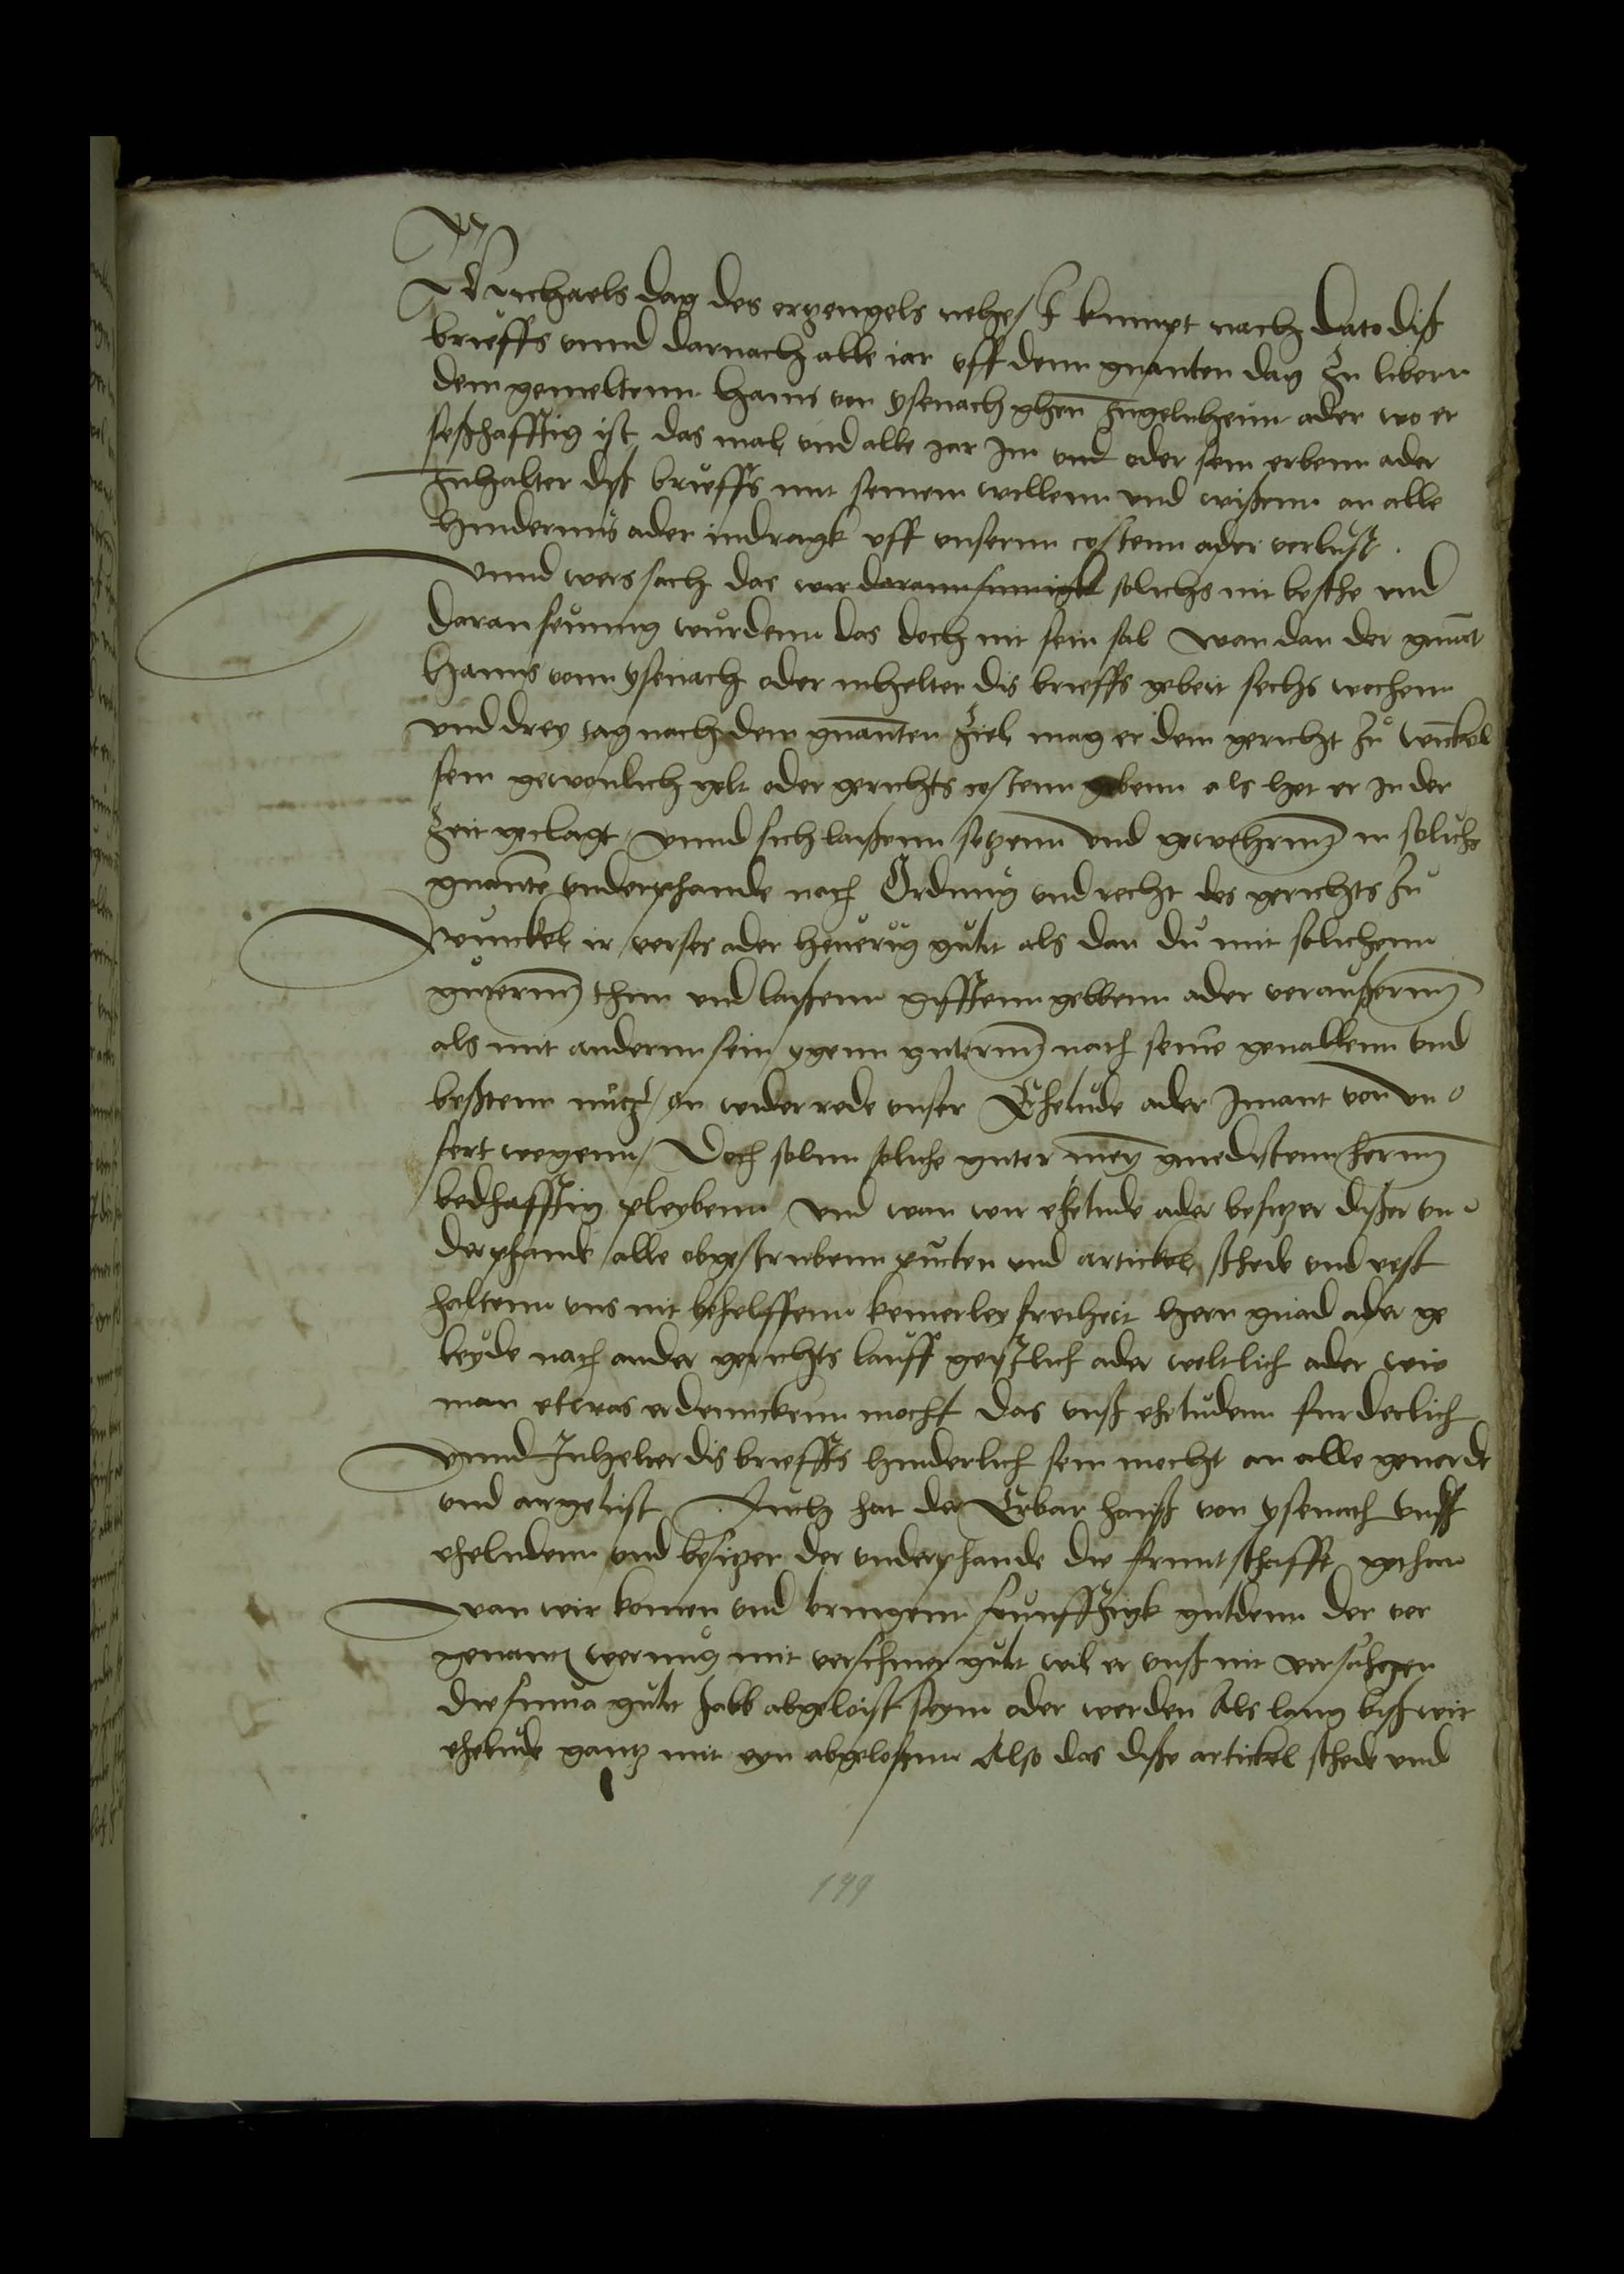 Michaels dag des ertzengels nehest kumpt nach dato diß
brieffs vnnd darnach alle iar vff denn gnanten dag zu libern
dem gemeltenn Hans von ysenach ghen Ingelnheim ader wo er
seßhafftig ist das mal, vnd alle jar im vnd oder sein erbenn ader
Inhalter diß brieffs mit seinem willenn vnd wißenn an alle
hindernis ader indragk vff vnsernn costenn ader verlust.
vnnd wers sach das wir darann sumigk solichs nit besche vnd
daran seumig wurdenn das doch nit sein sal wan dan der gnant
Hanns vonn ysenach oder inhelter dis brieffs gebeit sechs wochenn
vnd drey tag nach dem gnanten ziel, mag er dem gericht zu winckel
sein gewonlich gelt oder gerichts costenn gebenn als het er in der
zeit geclagt, vnnd sich laißenn setzenn vnd gewehrnn in soliche
gnante vnderphande nach Ordnung vnd recht des gerichts zu
winckel, ir verses ader heuerig gult als dan du mit solichenn
guternn thun vnd laißenn gifftenn gebbenn ader veraußernn
als mit andernn sein ygenn guternn nach seine geuallenn vnd
beßtenn nutz, on widerrede vnser Ehelude ader Imant von vn
sert wegenn, Doch solnn soliche guter mey gnedistenn hernn
bedhafftig pleybenn vnd wan wir ehelude ader besitzer dißer vn
derphande alle obgeschribenn puncten vnd artickel, stede vnd vest
haltenn vns nit behelffenn keinerley freiheit hern gnad ader ge
leyde nach ander gerichts lauff geistlich ader weltlich ader wie
man etwas erdennckenn mocht das vnß eheludenn furderlich
vnnd Inhelter dis brieffs hinderlich sein mocht an alle geuerde
vnd argelist Auch hat der Erbar hanß von ysenach vnß
eheludenn vnd besitzer der vnderphande die fruntschafft gethan
wan wir komen vnd bringenn funffzigk guldenn der vor
genantn werung mit verschiner gult wil er vnß nit versuhegen
die summa gult halb abgeloist seyn oder werden Als lang biß wir
ehelude gantz mit eyn abgelosenn Also das diße artickel stede vnd
199